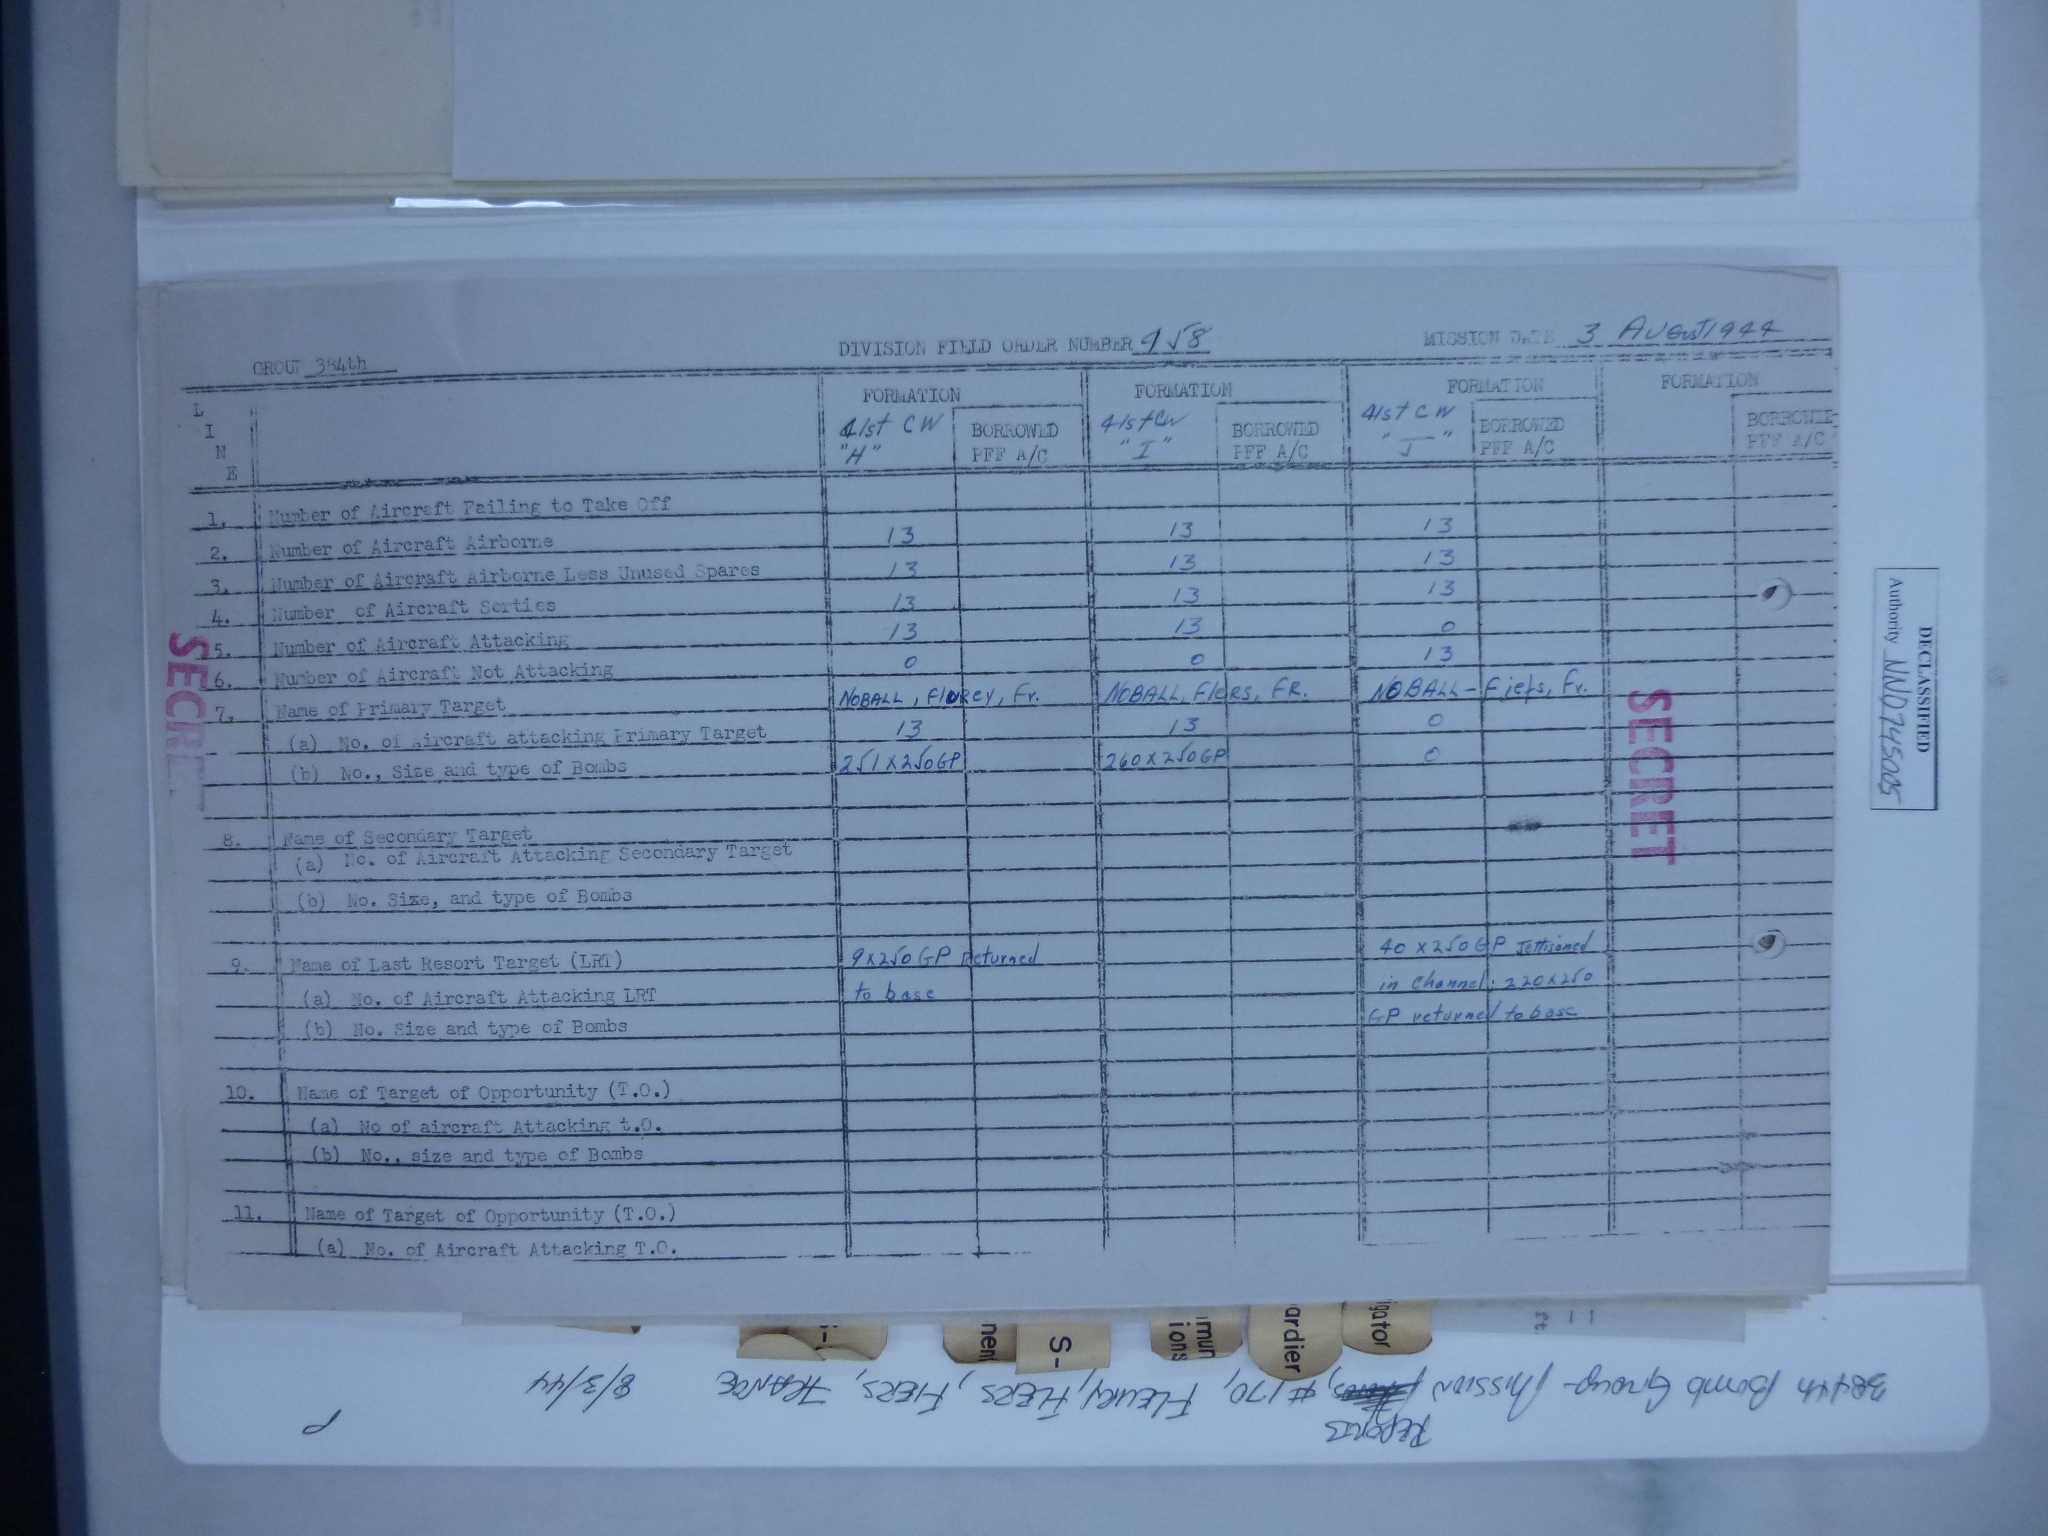 GROUP 384th
DIVISION FIELD ORDER NUMBER 458
MISSION DATE 3 August 1944
LINE
FORMATION FORMATION FORMATION FORMATION
41st CW "H" BORROWED PFF A/C 41st CW "I" BORROWED PFF A/C 41st CW "J" BORROWED PFF A/C BORROWED PFF A/C
1. Number of Aircraft Failing to Take Off
2. Number of Aircraft Airborne 13 13 13
3. Number of Aircraft Airborne Less Unused Spares 13 13 13
4. Number of Aircraft Sorties 13 13 13
5. Number of Aircraft Attacking 13 13 0
6. Number of Aircraft Not Attacking 0 0 13
7. Name of Primary Target NOBALL, Flurey, Fr. NOBALL, Flers, FR. NOBALL - Fiefs, Fr.
(a) No. of Aircraft attacking Primary Target 13 13 0
(b) No., Size and type of Bombs 251 X 250 GP 260 X 250 GP 0
8. Name of Secondary Target
(a) No. of Aircraft Attacking Secondary Target
(b) No. Size, and type of Bombs
9. Name of Last Resort Target (LRT) 9 X 250 GP Returned 40 X 250 GP Jettisoned
(a) No. of Aircraft Attacking LRT to base in Channel: 220 X 250
(b) No. Size and type of Bombs GP returned to base
10. Name of Target of Opportunity (T.O.)
(a) No of aircraft Attacking t.O.
(b) No., size and type of Bombs
11. Name of Target of Opportunity (T.O.)
(a) No. of Aircraft Attacking T.O.
SECRET
SECRET
DECLASSIFIED
Authority NND745005
nen
S-
mmun
ions
ardier
igator
ft.
384th Bomb Group - Mission Reports, #170, Fleury, Flers, Fiers, France 8/3/44
P